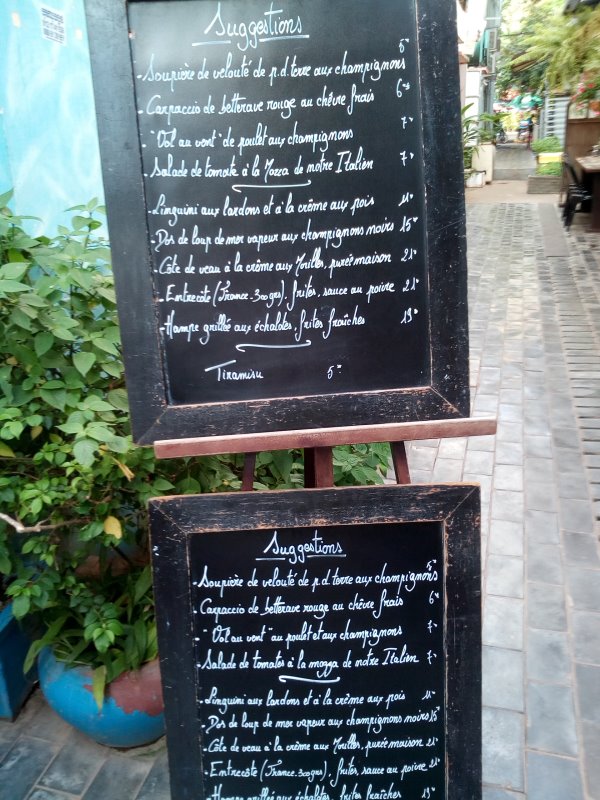 Suggestions
- Soupière de velouté de p.d.terre aux champignons 5
- Carpaccio de betterave rouge au chèvre frais 6
- "Vol au vent" de poulet aux champignons 7
Salade de tomate à la Mozza de notre Italien 7
- Linguini aux lardons et à la crème aux pois 11
- Dos de loup de mer vapeur aux champignons noirs 15
- Côte de veau à la crème aux Morilles, purée maison 21
- Entrecôte (France. 300grs), frites, sauce au poivre 21
- Hampe grillée aux échalotes, frites fraîches 19
Tiramisu 5
Suggestions
- Soupière de velouté de p.d.terre aux champignons 5
- Carpaccio de betterave rouge au chèvre frais 6
- "Vol au vent" au poulet et aux champignons 7
- Salade de tomates à la mozza de notre Italien 7
- Linguini aux lardons et à la crème aux pois 11
- Dos de loup de mer vapeur aux champignons noirs 15
- Côte de veau à la crème aux Morilles, purée maison 21
- Entrecôte (France. 300grs), frites, sauce au poivre 21
- Hampe grillée aux échalotes, frites fraîches 19